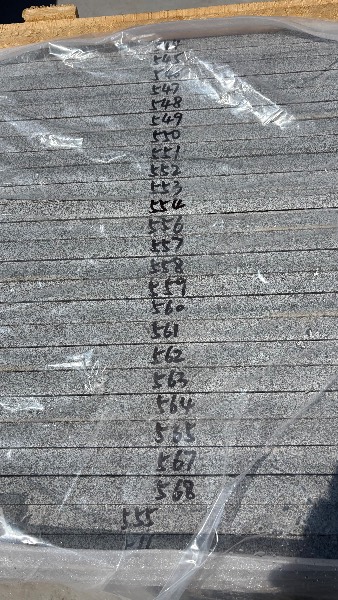 545
546
547
548
549
550
551
552
553
554
556
557
558
559
560
561
562
563
564
565
567
568
555